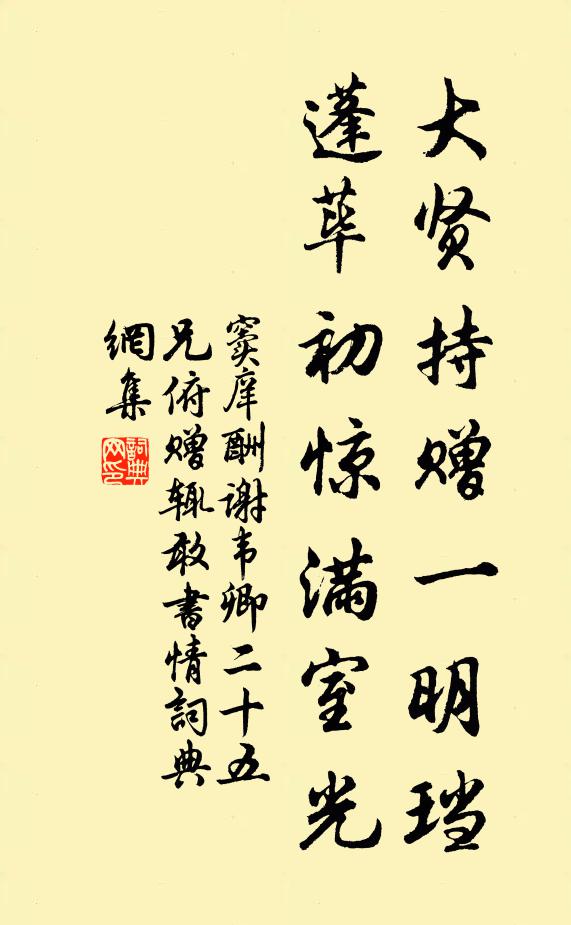 大贤持赠一明珰
蓬荜初惊满室光
窦庠酬谢韦卿二十五
兄俯赠辄敢书情詞典
網集
詞典
网印